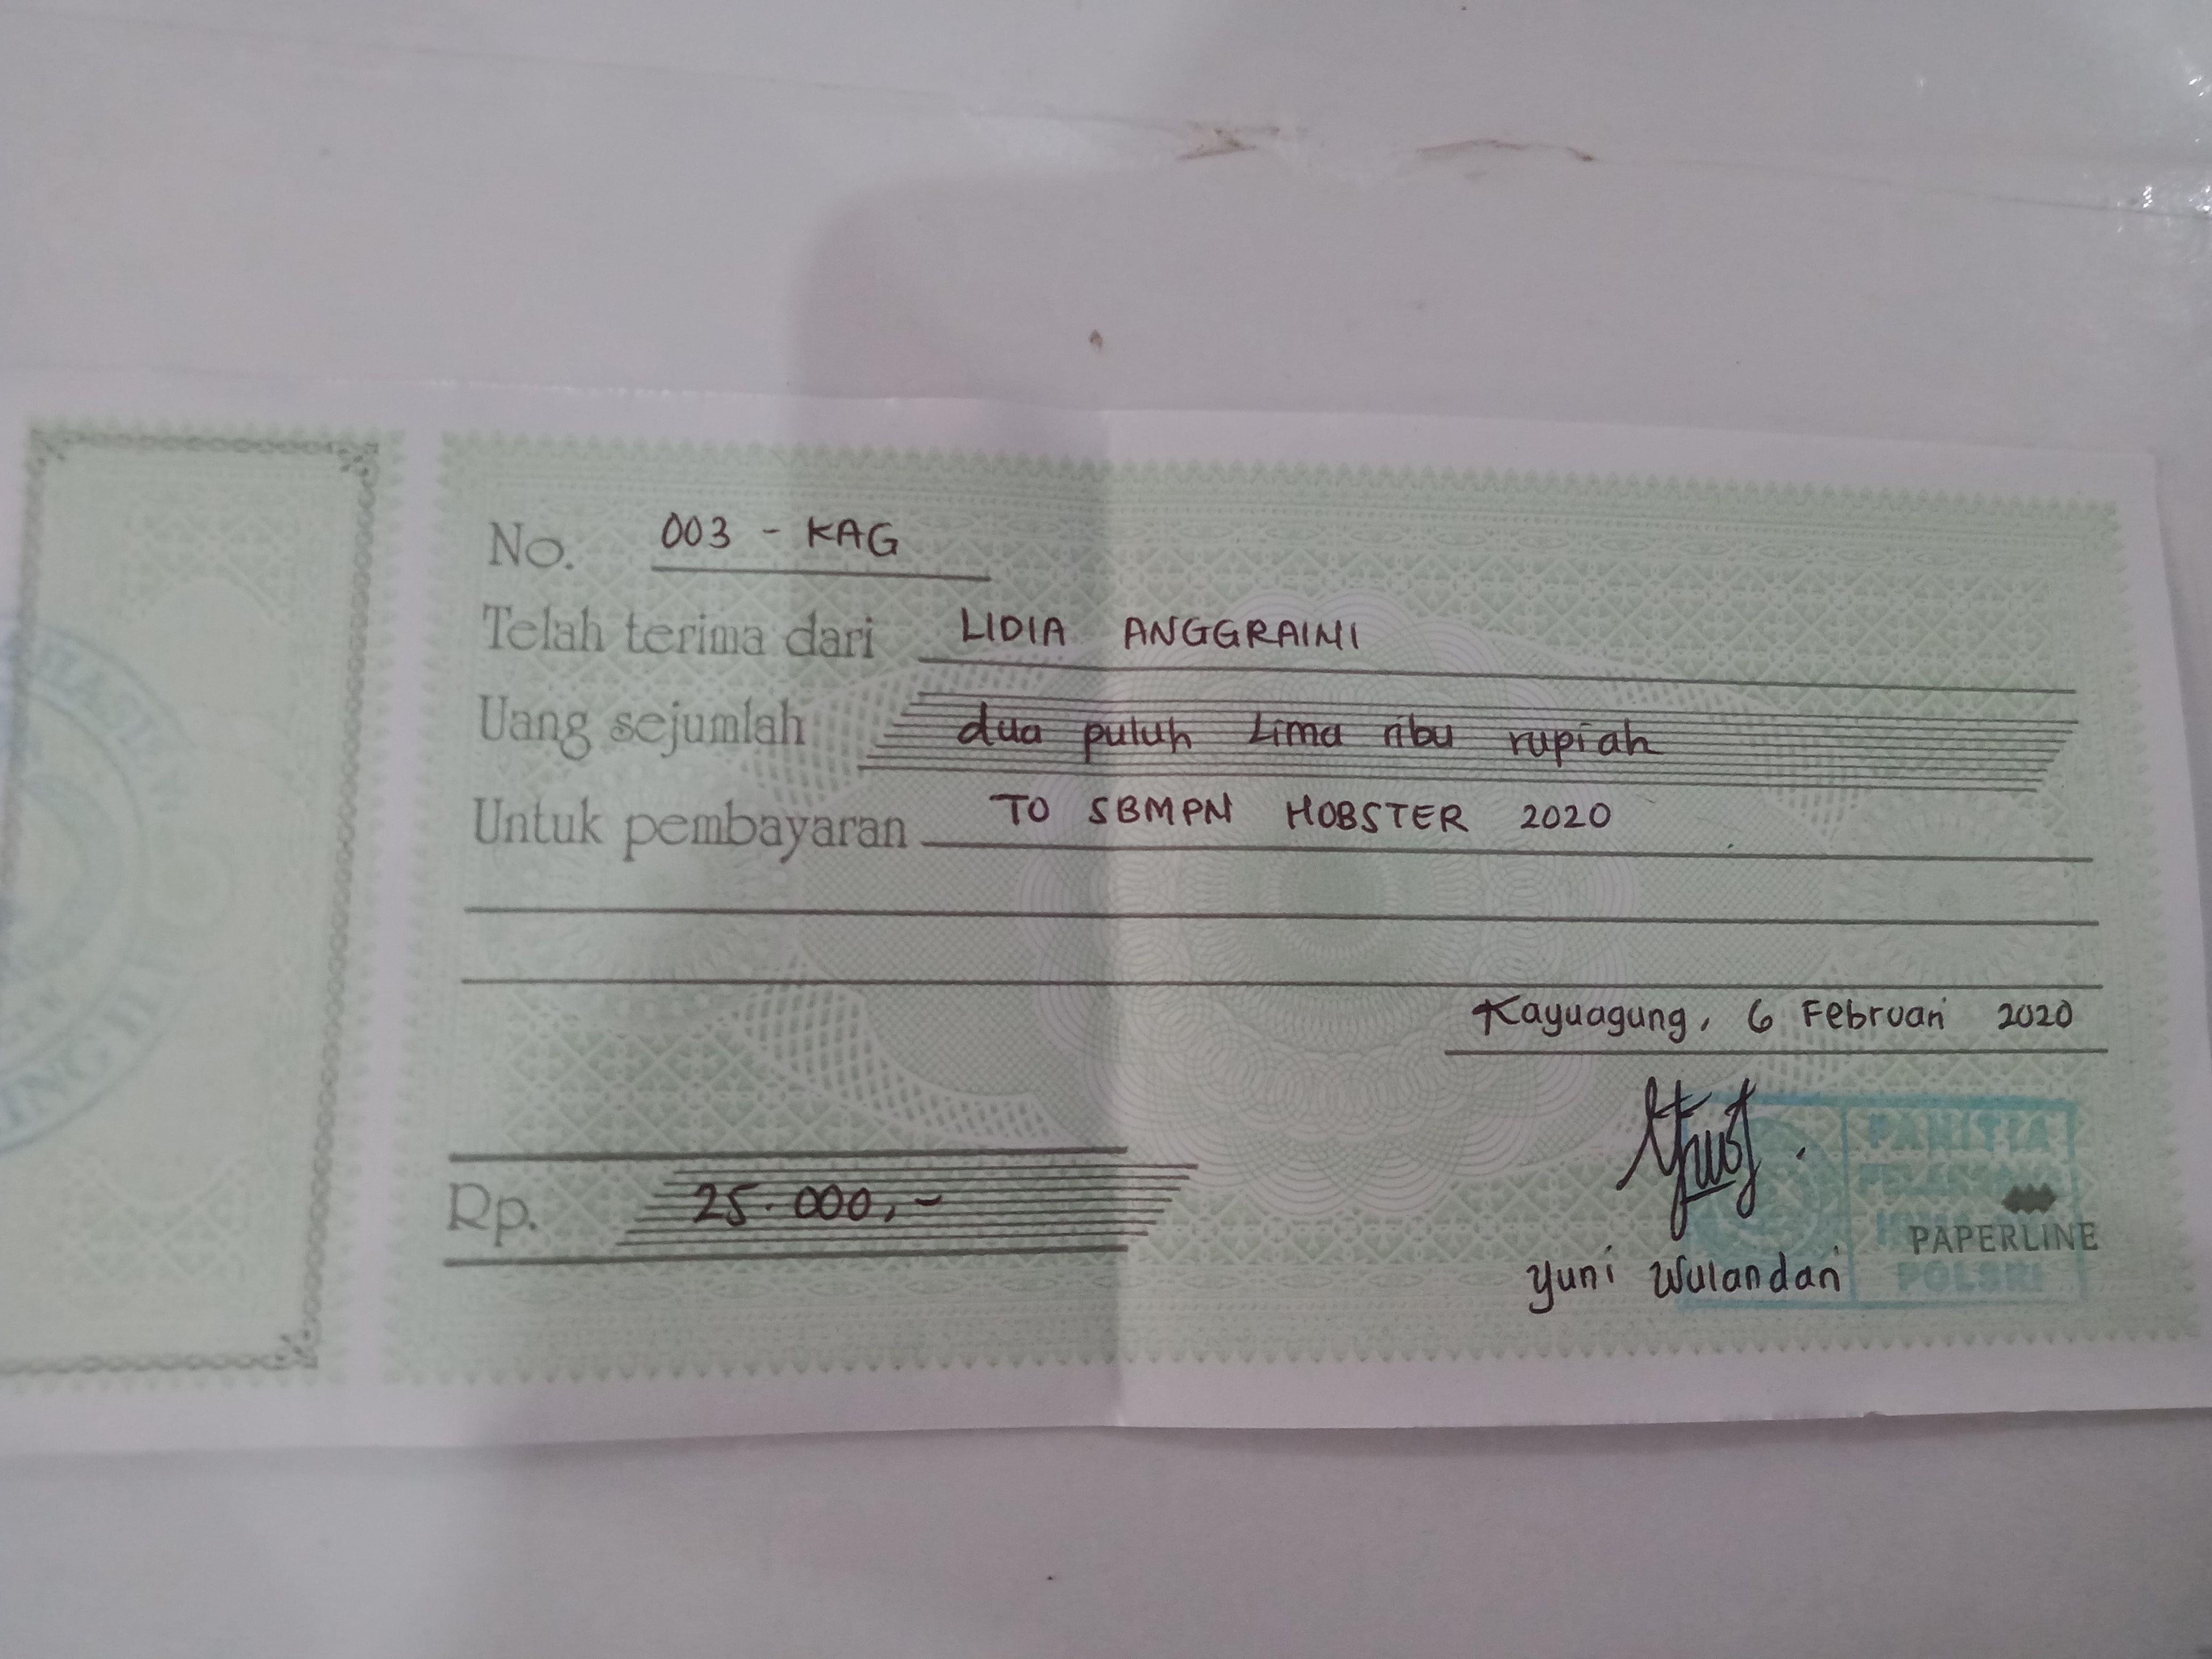 No. 003 - KAG
Telah terima dari LIDIA ANGGRAINI
Uang sejumlah dua puluh Lima ribu rupiah
Untuk pembayaran TO SBMPN HOBSTER 2020
Kayuagung, 6 Februari 2020
PANITIA
Rp. 25.000,-
PAPERLINE
POLSRI
Yuni Wulandari